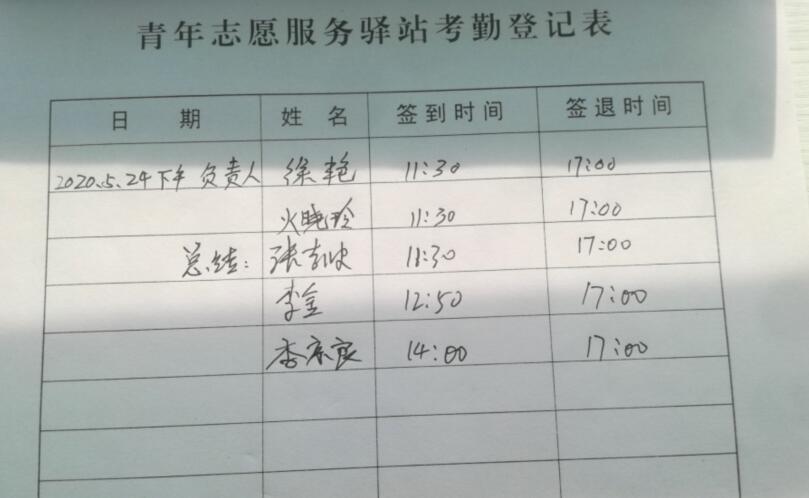 青年志愿服务驿站考勤登记表
日 期 姓 名 签到时间 签退时间
2020.5.24下午 负责人 徐艳 11:30 17:00
火晓玲 11:30 17:00
总结: 张 11:30 17:00
李金 12:50 17:00
李家良 14:00 17:00